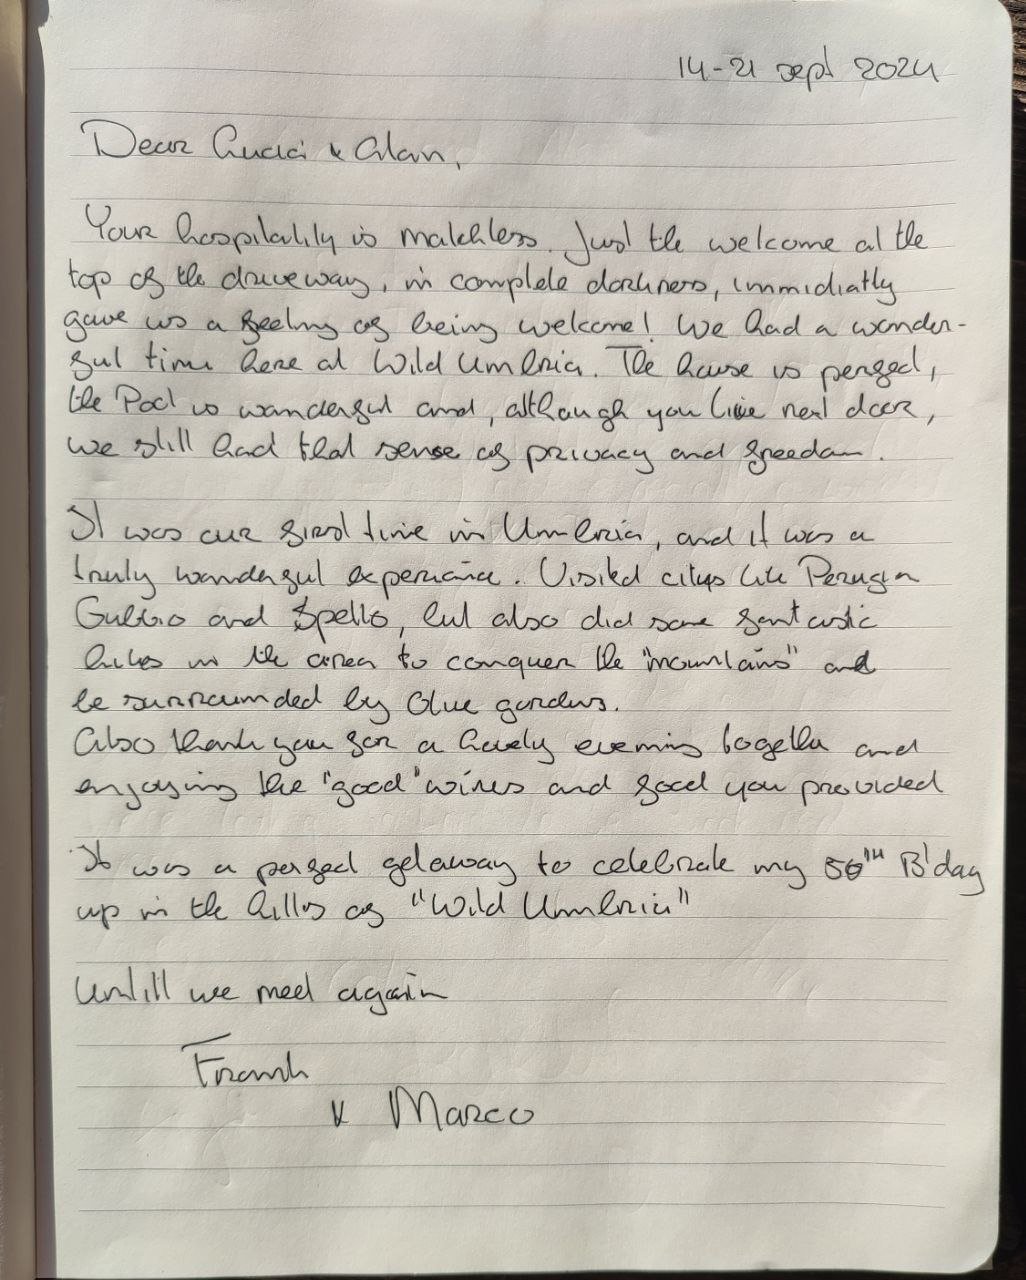 14-21 sept 2024
Dear & Alan,
Your hospitality is matchless. Just the welcome at the
top of the driveway, in complete darkness, immidiatly
gave us a feeling of being welcome! We had a wonder-
ful time here at Wild Umbria. The house is perfect,
the Pool is wonderful and, although you live next door,
we still had that sense of privacy and freedom.
It was our first time in Umbria, and it was a
truly wonderful experience. Visited citys like Perugia
Gubbio and Spello, but also did some fantastic
hikes in the area to conquer the "mountains" and
be surrounded by Olive gardens.
Also thank you for a lovely evening together and
enjoying the "good" wines and food you provided
It was a perfect getaway to celebrate my 50TH B'day
up in the hills of "Wild Umbria"
Untill we meet again
Frank
& Marco